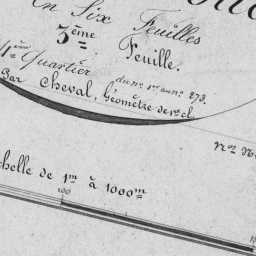 En Six Feuilles
3ème Feuille.
4ème Quartier
du no. 1er au no. 873.
Par Cheval, Géomètre de 1re cl.
chelle de 1m à 1000m
100